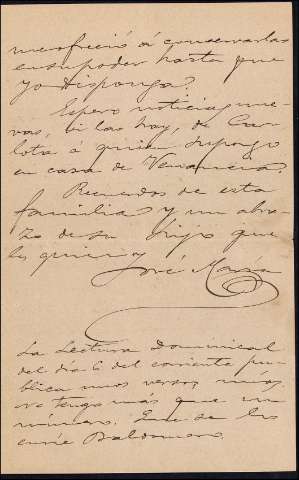 me ofreció á conservarlas
en su poder hasta que
yo disponga.
Espero noticias nue-
vas, si las hay, de Car-
lota á quien supongo
en casa de Venancia.
Recuerdos de esta
familia y un abra-
zo de su hijo que
les quiere
José María
La Lectura Dominical
del dia 6 del corriente pu-
blica unos versos mios,
no tengo más que un
número. Que se los
envie Baldomero.